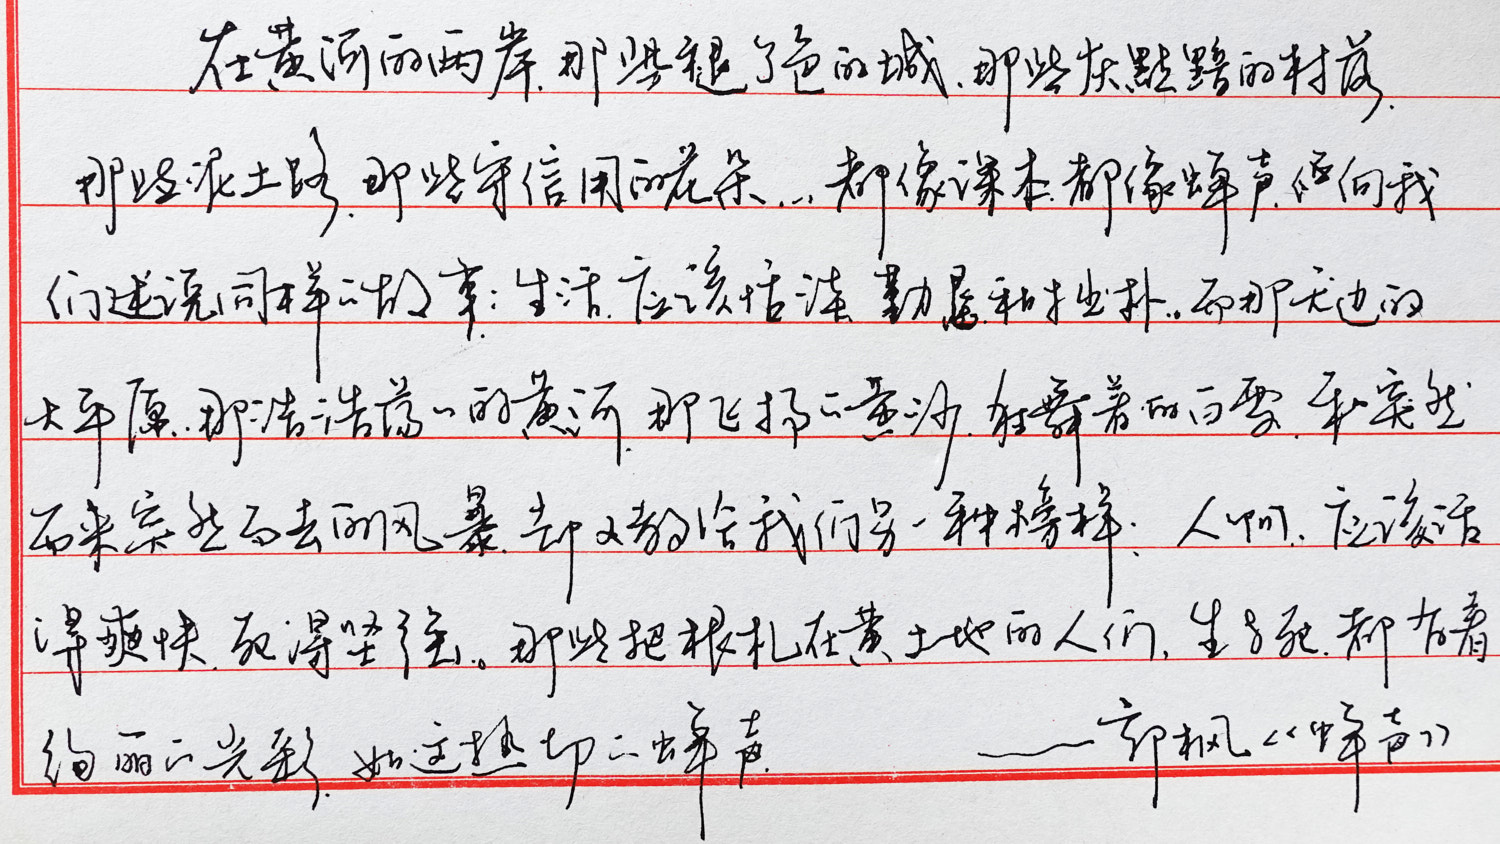 在黄河的两岸，那些褪了色的城，那些灰黯黯的村落，
那些泥土路，那些守信用的花朵……都像课本，都像蝉声，经向我
们述说同样的故事：生活，应该恬淡、勤恳和拙朴。而那无边的
大平原，那浩浩荡荡的黄河，那飞扬的黄沙，狂舞着的白雪，和突然
而来突然而去的风暴，却又教给我们另一种榜样：人们，应该活
得爽快，死得坚强。那些把根札在黄土地的人们，生与死，都有着
绚丽的光彩，如这热切的蝉声。
——郭枫《蝉声》